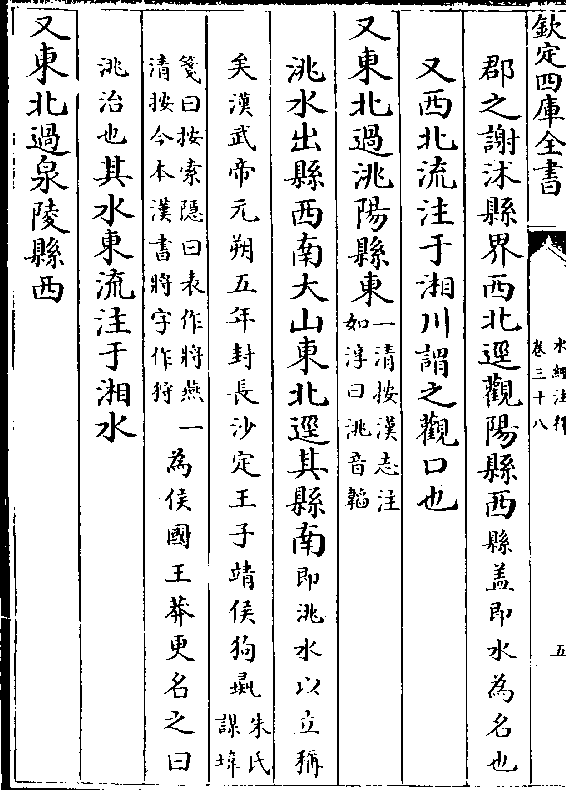 欽定四庫全書
水經注釋
卷三十八
五
郡之謝沭縣界西北逕觀陽縣西縣盖即水為名也
又西北流注于湘川謂之觀口也
又東北過洮陽縣東一清按漢志注如淳曰洮音韜
洮水出縣西南大山東北逕其縣南即洮水以立稱
矣漢武帝元朔五年封長沙定王子靖侯狗彘朱氏謀㙔
箋曰按索隱曰表作將燕一清按今本漢書將字作狩為侯國王莽更名之曰
洮治也其水東流注于湘水
又東北過泉陵縣西